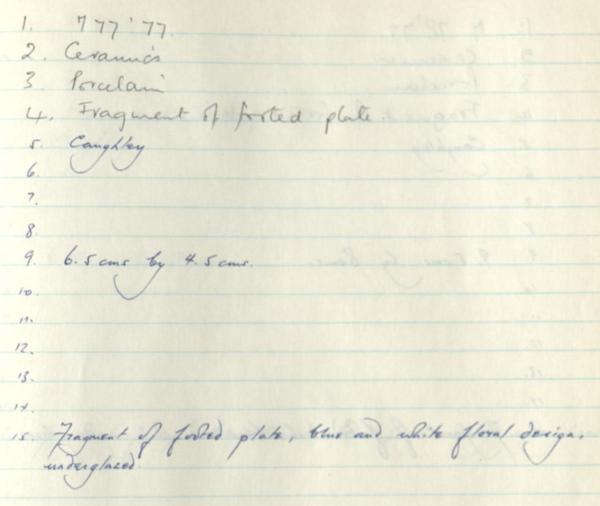 1. 777'77.
2. Ceramics
3. Porcelain
4. Fragment of footed plate.
5. Caughley
6.
7.
8.
9. 6.5 cms by 4.5 cms.
10.
11.
12.
13.
14.
15 Fragment of footed plate, blue and white floral design.
underglazed.